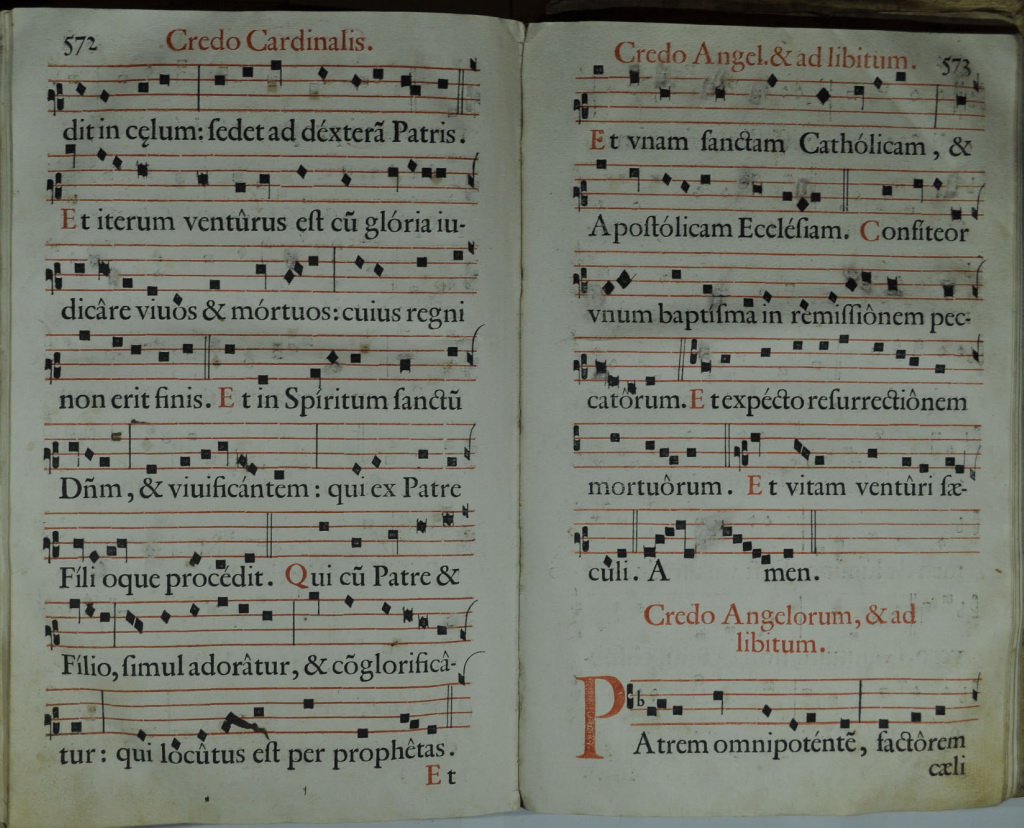 572
Credo Cardinalis.
dit in cęlum: ſedet ad déxterã Patris.
Et iterum ventûrus eſt cũ glória iu-
dicâre viuos & mórtuos: cuius regni
non erit finis. Et in Spíritum ſanctũ
Dñm, & viuificántem: qui ex Patre
Fíli oque procédit. Qui cũ Patre &
Fílio, ſimul adorâtur, & cõglorificâ-
tur: qui locûtus eſt per prophêtas.
Et
Credo Angel. & ad libitum. 573
Et vnam ſanctam Cathólicam, &
Apoſtólicam Eccléſiam. Confiteor
vnum baptíſma in remiſſiônem pec-
catôrum. Et expécto reſurrectiônem
mortuôrum. Et vitam ventûri ſæ-
culi. A men.
Credo Angelorum, & ad
libitum.
PAtrem omnipoténtẽ, factôrem
cæli